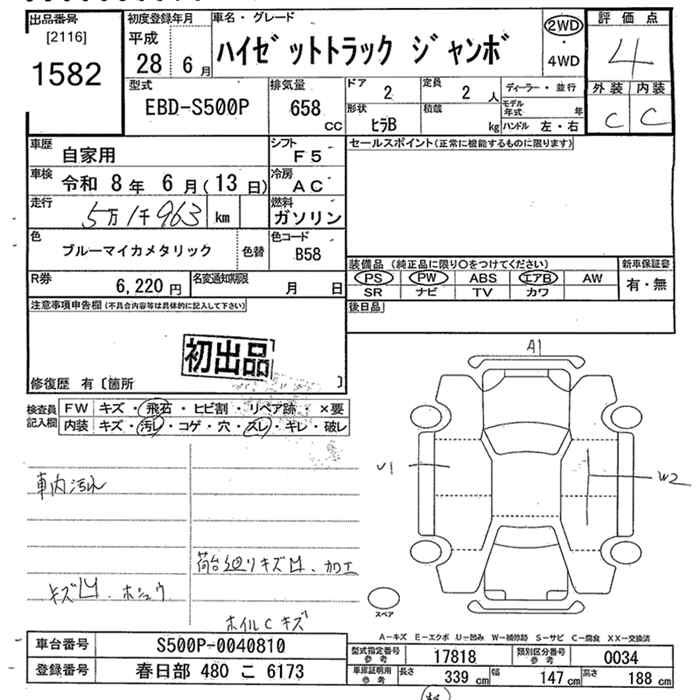 出品番号 初度登録年月 車名・グレード 2WD 評価点
[2116] 平成 ハイゼットトラック ジャンボ ・ 4
1582 28年 6月 4WD
型式 排気量 ドア 2 定員 2人 ディーラー・並行 外装 内装
EBD-S500P 658 CC 形状 ﾋﾗB 積載 kg モデル年式 年 C C
ハンドル 左・右
車歴 自家用 シフト F5 セールスポイント(正常に機能するものに限ります)
車検 令和 8年 6月(13日) 冷房 AC
走行 5万1千963 km 燃料 ガソリン
色 ブルーマイカメタリック 色替 色コード B58
装備品 (純正品に限り〇をつけてください) 新車保証書
R券 6,220円 名変通知期限 月 日 PS PW ABS エアB AW 有・無
SR ナビ TV カワ
注意事項申告欄(不具合内容等は具体的に記入して下さい) 後日品
初出品
修復歴 有〔箇所 〕
検査員記入欄 FW キズ・飛石・ヒビ割・リペア跡・×要
内装 キズ・汚レ・コゲ・穴・スレ・キレ・破レ
A1
U1 W2
車内汚れ
荷台廻りキズ凹、加工
キズ凹、ホシュウ
ホイルCキズ
スペア
A-キズ E-エクボ U-凹み W-補修跡 S-サビ C-腐食 XX-交換済
車台番号 S500P-0040810 型式指定番号 参考 17818 類別区分番号 参考 0034
登録番号 春日部 480 こ 6173 車庫証明用 参考 長さ 339 cm 幅 147 cm 高さ 188 cm